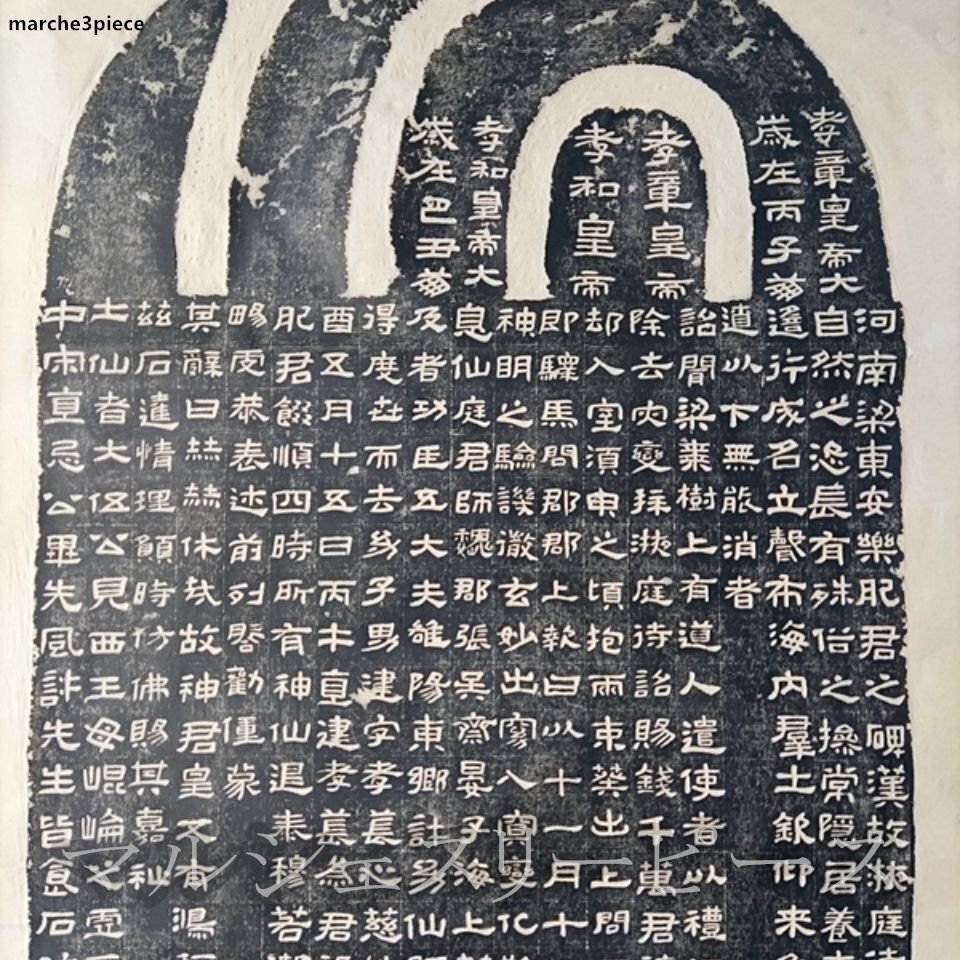 marche3piece
孝章皇帝大
歲在丙子崩
孝章皇帝
孝和皇帝
孝和皇帝大
歲在巳丑崩
河南梁東安樂肥君之碑漢故掖庭待
自然之恣長有殊俗之操常隱居養
遙行成名立聲布海內羣士欽仰來
道以下無能消者
詔聞梁棗樹上有道人遣使者以禮
除去灾變拜掖庭待詔賜錢千萬君
却入室須臾之頃抱兩束葵出上問
即驛馬問郡郡上報曰以十一月十
神明之驗譏徹玄妙出窈入冥變化
息仙庭君師魏郡張吳齋晏子海上
及者功臣五大夫雒陽東鄉許幼仙
得度世而去幼子男建字孝萇心慈
酉五月十五日丙午直建孝萇為君
肥君餟順四時所有神仙退泰穆若
畼虔恭表述前列啓勸僮蒙
其辭曰赫赫休哉故神君皇又有鴻
茲石達情理願時仿佛賜其嘉祉
士仙者大伍公見西王母崐崘之虛
中宋直忌公畢先風許先生皆食石
マルシェスリーピース